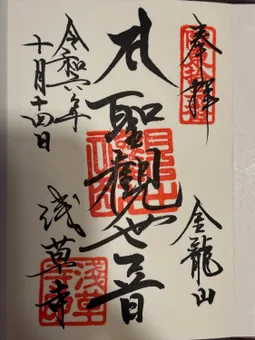 奉拝
金龍山
聖觀世音
浅草寺
令和六年
十月十四日
浅草寺